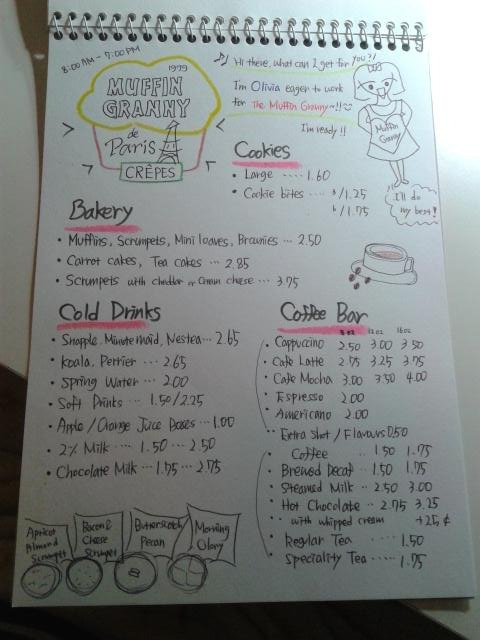 8:00 AM - 7:00 PM
1979
MUFFIN
GRANNY
de
Paris
CRÊPES
Hi there, what can I get for you?!
I'm Olivia eager to work
for The Muffin Granny~!!
I'm ready!!
Muffin
Granny
I'll do
my best!
Cookies
• Large ···· 1.60
• Cookie bites ···· 4/1.25
6/1.75
Bakery
• Muffins, Scrumpets, Mini loaves, Brownies ··· 2.50
• Carrot cakes, Tea cakes ··· 2.85
• Scrumpets with cheddar or cream cheese ··· 3.75
Cold Drinks
• Snapple, Minute maid, Nestea ··· 2.65
• Koala, Perrier ··· 2.65
• Spring Water ··· 2.00
• Soft Drinks ··· 1.50/2.25
• Apple/Orange Juice Boxes ··· 1.00
• 2% Milk ··· 1.50 ··· 2.50
• Chocolate Milk ··· 1.75 ··· 2.75
Coffee Bar
8 oz 12 oz 16 oz
• Cappuccino 2.50 3.00 3.50
• Cafe Latte 2.75 3.25 3.75
• Cafe Mocha 3.00 3.50 4.00
• Espresso 2.00
• Americano 2.00
Extra Shot / Flavours 0.50
• Coffee 1.50 1.75
• Brewed Decaf 1.50 1.75
• Steamed Milk 2.50 3.00
• Hot Chocolate 2.75 3.25
with whipped cream +25¢
• Regular Tea ···· 1.50
• Speciality Tea ····· 1.75
Apricot
Almond
Scrumpet
Bacon &
Cheese
Scrumpet
Butterscotch
Pecan
Morning
Glory